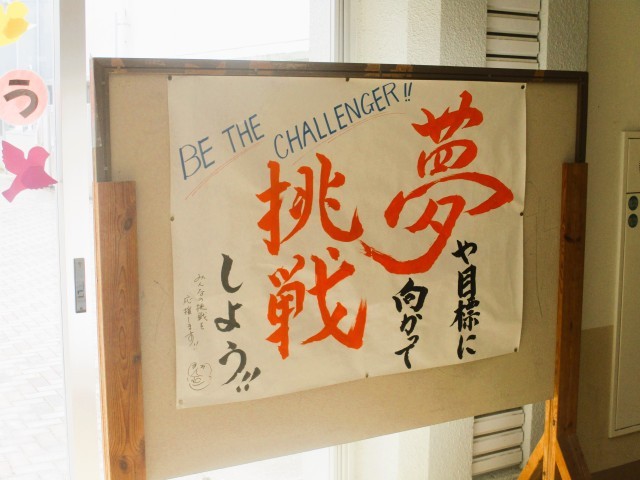 BE THE CHALLENGER!!
夢や目標に
向かって
挑戦
しよう!!
みんなの挑戦を
応援します!!
う